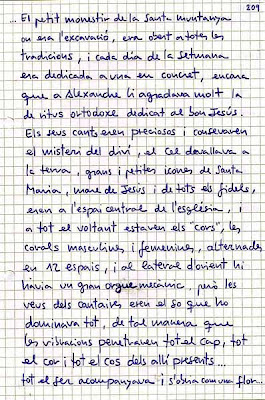 209
... El petit monestir de la Santa muntanya
on era l'excavació, era obert a totes les
tradicions, i cada dia de la setmana
era dedicada a una en concret, encara
que a Alexandre li agradava molt la
de ritus ortodoxe dedicat al bon Jesús.
Els seus cants eren preciosos i conservaven
el misteri del diví, el Cel devallava a
la terra, grans i petites icones de Santa
Maria, mare de Jesús i de tots els fidels,
eren a l'espai central de l'església, i
a tot el voltant estaven els "cors", les
corals masculines i femenines, alternades
en 12 espais, i al lateral d'orient hi
havia un gran orgue mecànic, però les
veus dels cantaires eren el so que ho
dominava tot, de tal manera que
les vibracions penetraven tot el cap, tot
el cor i tot el cos dels allí presents...
tot el ser acompanyava i s'obria com una flor...